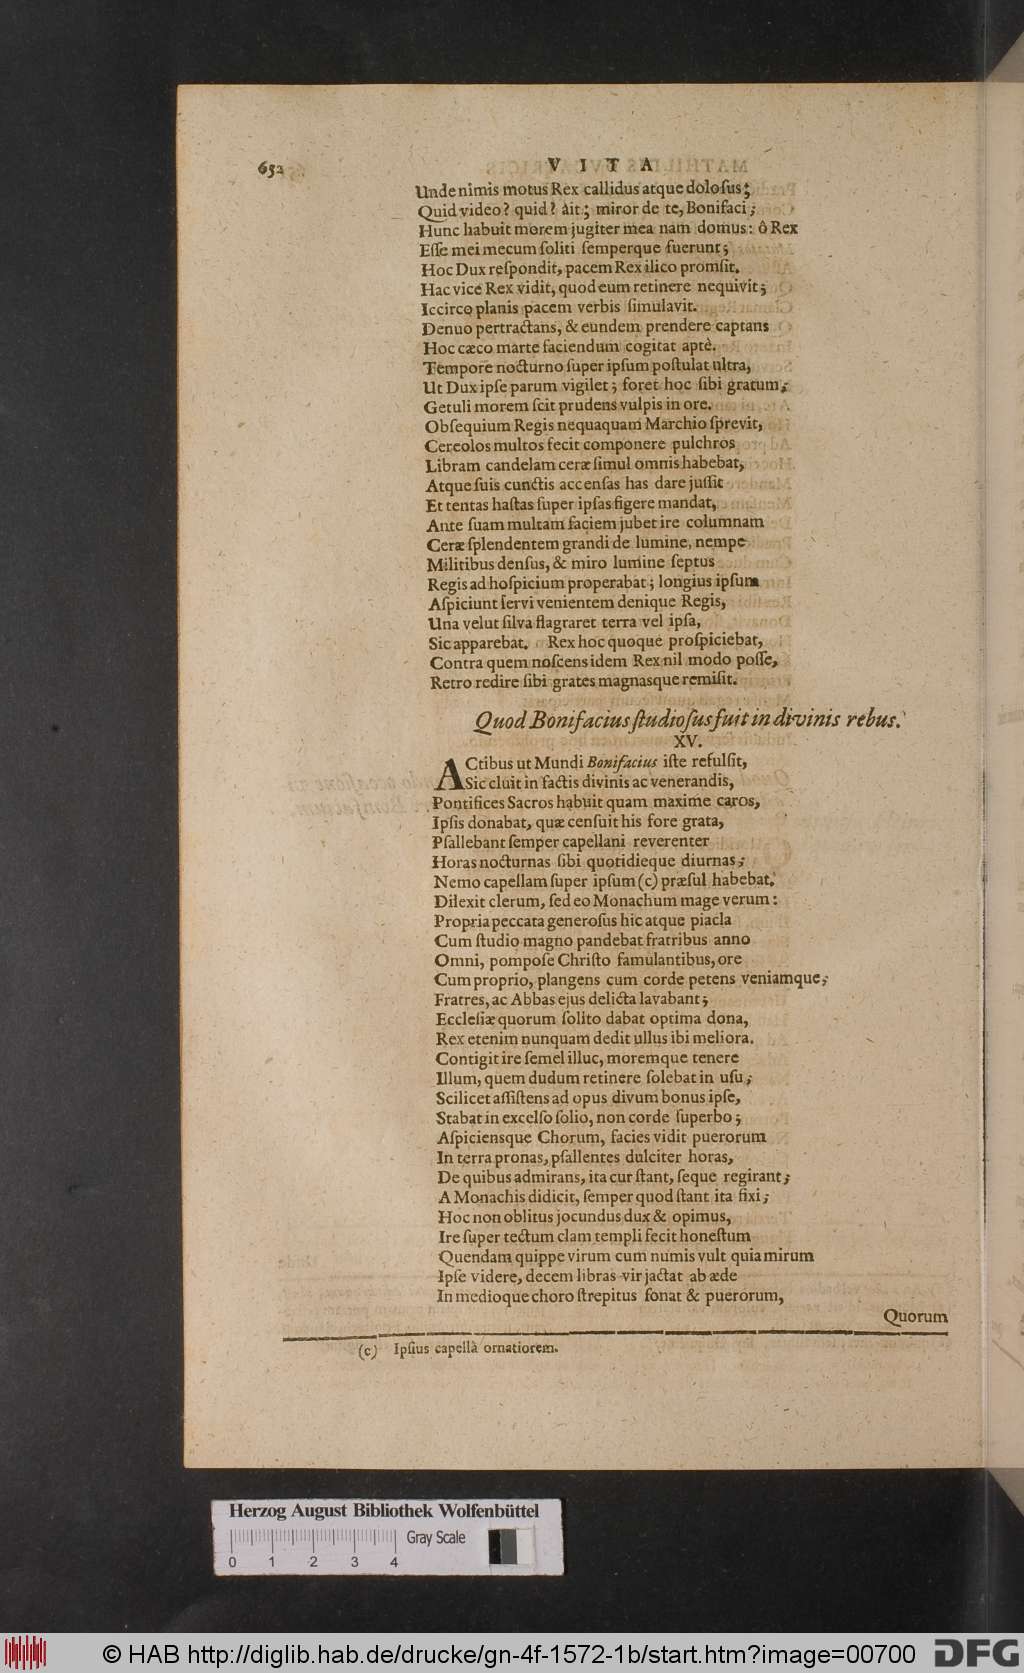 652 VITA
Unde nimis motus Rex callidus atque doloſus;
Quid video? quid? àit; miror de te, Bonifaci;
Hunc habuit morem jugiter mea nam domus: ô Rex
Eſſe mei mecum ſoliti ſemperque fuerunt;
Hoc Dux reſpondit, pacem Rex ilico promſit.
Hac vice Rex vidit, quod eum retinere nequivit;
Iccirco planis pacem verbis ſimulavit.
Denuo pertractans, & eundem prendere captans
Hoc cæco marte faciendum cogitat aptè.
Tempore nocturno ſuper ipſum poſtulat ultra,
Ut Dux ipſe parum vigilet; foret hoc ſibi gratum;
Getuli morem ſcit prudens vulpis in ore.
Obſequium Regis nequaquam Marchio ſprevit,
Cereolos multos fecit componere pulchros
Libram candelam ceræ ſimul omnis habebat,
Atque ſuis cunctis accenſas has dare juſſit
Et tentas haſtas ſuper ipſas figere mandat,
Ante ſuam multam faciem jubet ire columnam
Ceræ ſplendentem grandi de lumine, nempe
Militibus denſus, & miro lumine ſeptus
Regis ad hoſpicium properabat; longius ipſum
Aſpiciunt ſervi venientem denique Regis,
Una velut ſilva flagraret terra vel ipſa,
Sic apparebat. Rex hoc quoque proſpiciebat,
Contra quem noſcens idem Rex nil modo poſſe,
Retro redire ſibi grates magnasque remiſit.
Quod Bonifacius ſtudioſus fuit in divinis rebus.
XV.
ACtibus ut Mundi Bonifacius iſte refulſit,
Sic cluit in factis divinis ac venerandis,
Pontifices Sacros habuit quam maxime caros,
Ipſis donabat, quæ cenſuit his fore grata,
Pſallebant ſemper capellani reverenter
Horas nocturnas ſibi quotidieque diurnas;
Nemo capellam ſuper ipſum (c) præſul habebat.
Dilexit clerum, ſed eo Monachum mage verum:
Propria peccata generoſus hic atque piacla
Cum ſtudio magno pandebat fratribus anno
Omni, pompoſe Chriſto famulantibus, ore
Cum proprio, plangens cum corde petens veniamque;
Fratres, ac Abbas ejus delicta lavabant;
Eccleſiæ quorum ſolito dabat optima dona,
Rex etenim nunquam dedit ullus ibi meliora.
Contigit ire ſemel illuc, moremque tenere
Illum, quem dudum retinere ſolebat in uſu;
Scilicet aſſiſtens ad opus divum bonus ipſe,
Stabat in excelſo ſolio, non corde ſuperbo;
Aſpiciensque Chorum, facies vidit puerorum
In terra pronas, pſallentes dulciter horas,
De quibus admirans, ita cur ſtant, ſeque regirant;
A Monachis didicit, ſemper quod ſtant ita fixi;
Hoc non oblitus jocundus dux & opimus,
Ire ſuper tectum clam templi fecit honeſtum
Quendam quippe virum cum numis vult quia mirum
Ipſe videre, decem libras vir jactat ab æde
In medioque choro ſtrepitus ſonat & puerorum,
Quorum
(c) Ipſius capellà ornatiorem.
Herzog August Bibliothek Wolfenbüttel
Gray Scale
0 1 2 3 4
© HAB http://diglib.hab.de/drucke/gn-4f-1572-1b/start.htm?image=00700
DFG